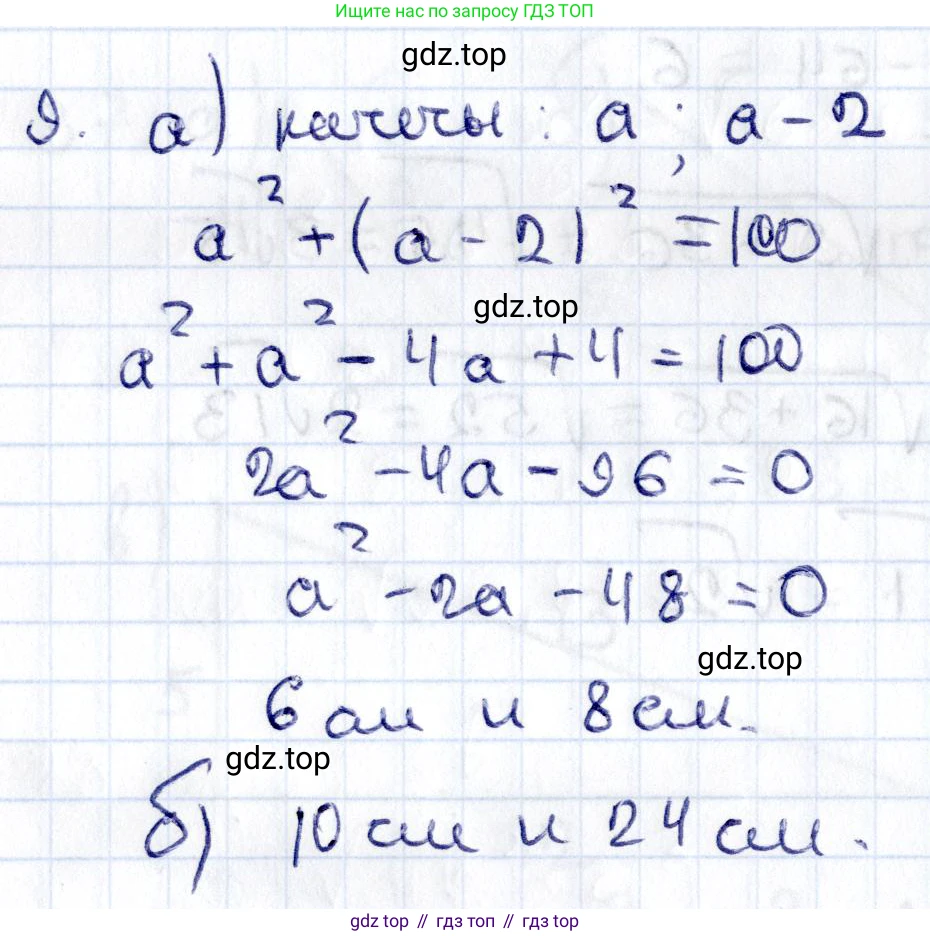 Ищите нас по запросу ГДЗ ТОП
gdz.top
9. а) катеты: a; a - 2
a² + (a - 2)² = 100
gdz.top
a² + a² - 4a + 4 = 100
2a² - 4a - 96 = 0
a² - 2a - 48 = 0
gdz.top
6 см и 8 см.
gdz.top
б) 10 см и 24 см.
gdz top // гдз топ // гдз top